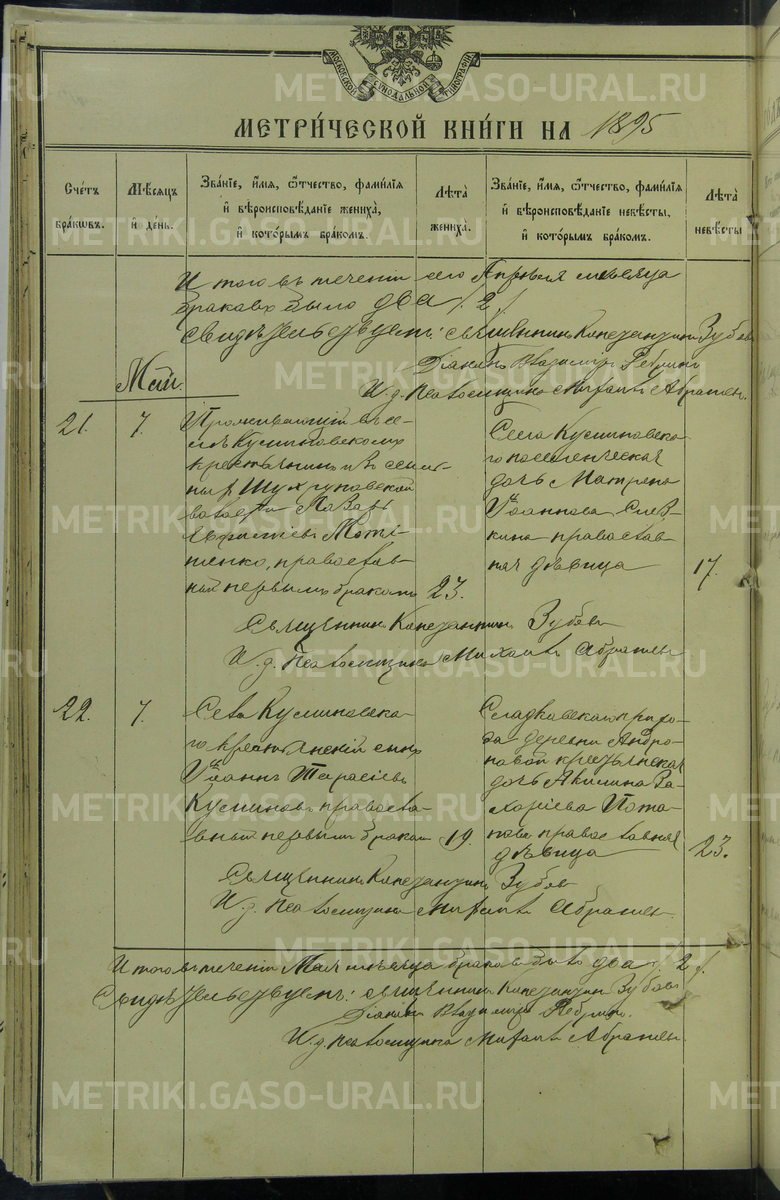 МОСКОВСКОЙ СУНОДАЛЬНОЙ ТИПОГРАФІИ
МЕТРИ́ЧЕСКОЙ КНИ́ГИ НА 1895
Сче́тъ бра́кωвъ.
Мѣ́сяцъ и҆ де́нь.
Зва́нїе, и҆́мя, ѻ҆́тчество, фами́лїя и҆ вѣроисповѣ́данїе жениха̀, и҆ кото́рымъ бра́комъ.
Лѣта̀ жениха̀.
Зва́нїе, и҆́мя, ѻ҆́тчество, фами́лїя и҆ вѣроисповѣ́данїе невѣ́сты, и҆ кото́рымъ бра́комъ.
Лѣта̀ невѣ́сты
Итого въ теченіи сего Апрѣля мѣсяца
браковъ было два /2/.
Свидѣтельствуетъ: священникъ Константинъ Зубовъ
Діаконъ Владиміръ
И. д. псаломщика Михаилъ
Май.
21.
7.
Проживающій въ се-
лѣ Кусмиковскомъ
крестьянинъ
Шухруповской
волости Лазарь
православ-
ный первымъ бракомъ
23.
Села Кусмиковска-
го поселенческая
дочь Матрона
Іоаннова
православ-
ная дѣвица
17.
Священникъ Константинъ Зубовъ
И. д. псаломщика Михаилъ
22.
7.
Села Кусмиковска-
го крестьянскій сынъ
Іоаннъ Тарасіевъ
Кусминовъ правосла-
вный первымъ бракомъ
19.
Сладковскаго прихо-
да деревни Андро-
новой крестьянская
дочь Акилина За-
харіева Пота-
пова православная
дѣвица
23.
Священникъ Константинъ Зубовъ
И. д. псаломщика Михаилъ
Итого въ теченіи Мая мѣсяца браковъ было два /2/.
Свидѣтельствуетъ: священникъ Константинъ Зубовъ
Діаконъ Владиміръ
И. д. псаломщика Михаилъ
METRIKI.GASO-URAL.RU